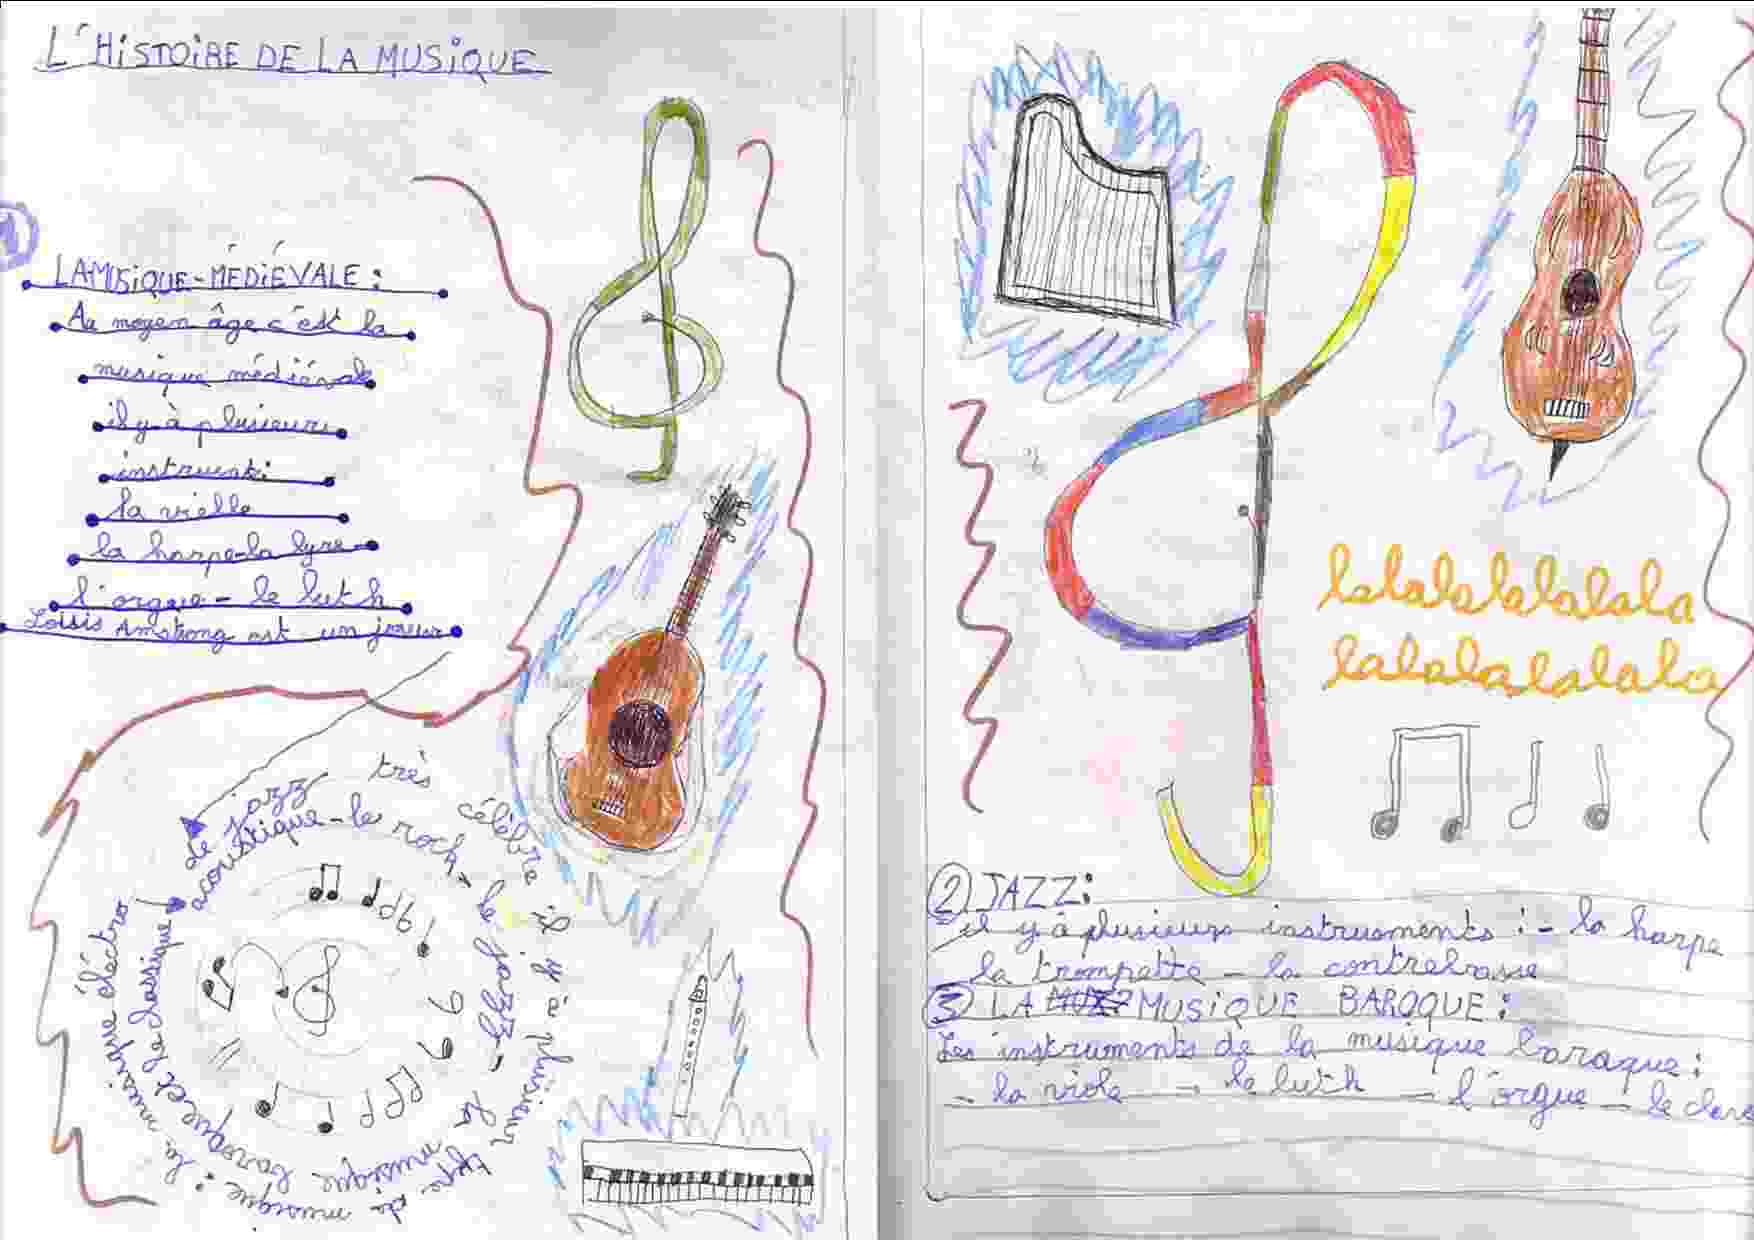 L'HISTOIRE DE LA MUSIQUE
1
LA MUSIQUE-MÉDIÉVALE :
Au moyen âge c'est la
musique médiévale
il y à plusieurs
instruent:
la vielle
la harpe-la lyre-
l'orgue - le luth
Loisis Amstrong est un joueur
de jazz très célèbre il y à plusieur type de musique : la musique éléctro
acoustique - le rock - le jazz - la musique baroque et le classique
lalalalalalala
lalalalalalala
2 JAZZ:
il y à plusieurs instrusments : - la harpe
la trompette - la contrebasse
3 LA MUSIQUE BAROQUE :
Les instruments de la musique baraque :
- la viole - le luth - l'orgue - le clave